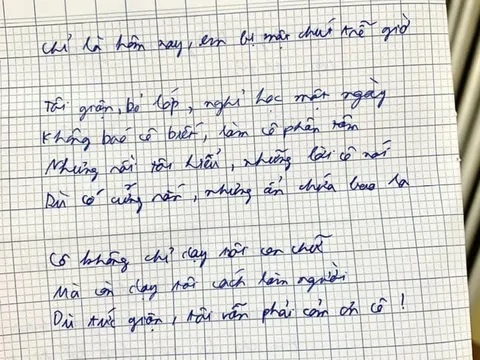 Chỉ là hôm nay, em bị một chút trễ giờ
Tôi giận, bỏ lớp, nghỉ học một ngày
Không báo cô biết, làm cô phận tâm
Nhưng rồi tôi hiểu, những lời cô nói
Dù có cứng rắn, nhưng ẩn chứa bao la
Cô không chỉ dạy tôi con chữ
Mà còn dạy tôi cách làm người
Dù tức giận, tôi vẫn phải cảm ơn cô !